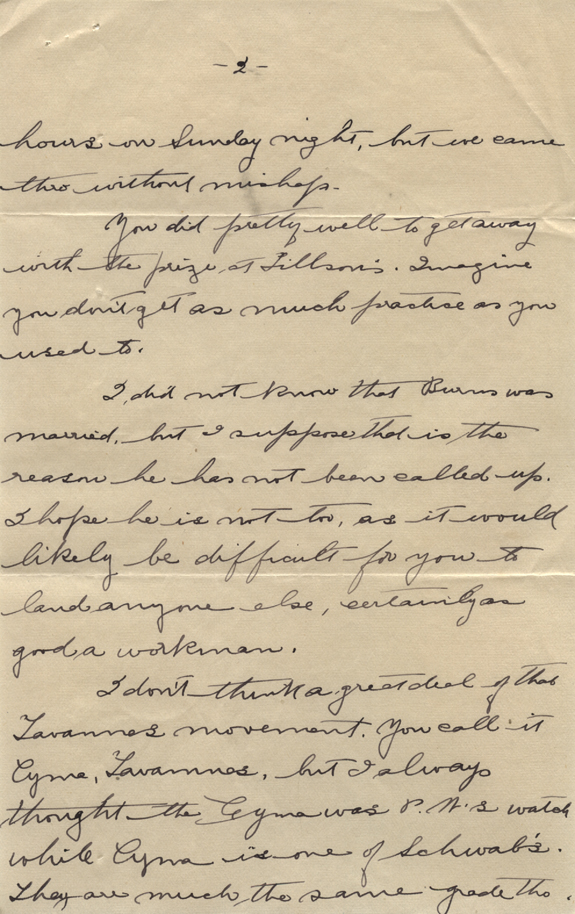 -2-
hours on Sunday night, but we came
thro without mishap.
You did pretty well to get away
with the prize at Tillson's. Imagine
you don't get as much practise as you
used to.
I did not know that Burns was
married, but I suppose that is the
reason he has not been called up.
I hope he is not to, as it would
likely be difficult for you to
land anyone else, certainly as
good a workman.
I don't think a great deal of that
Tavannes movement. You call it
Cyma, Tavannes, but I always
thought the Cyma was P.W.'s watch
while Cyma is one of Schwab's.
They are much the same grade tho.